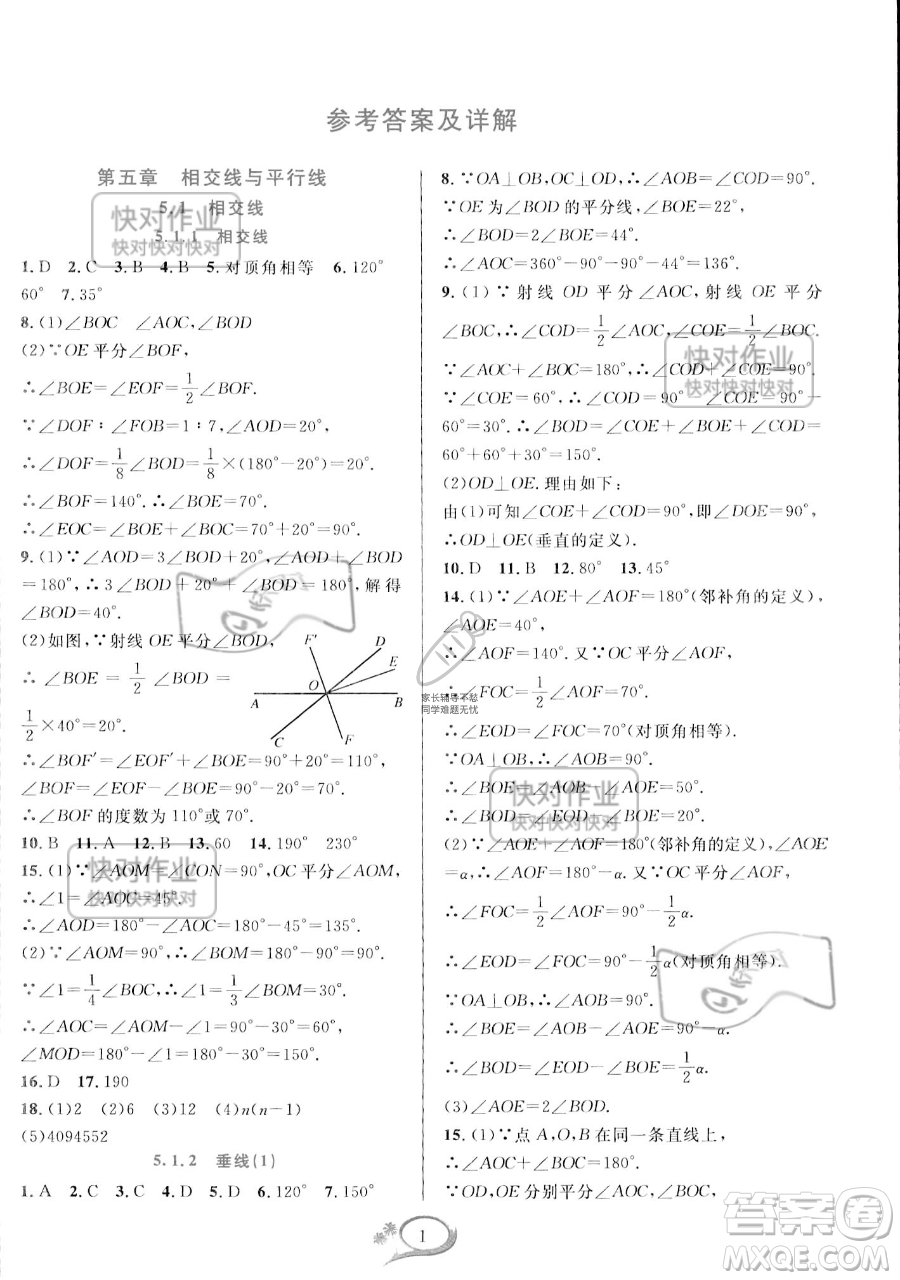 参考答案及详解
第五章 相交线与平行线
5.1 相交线
5.1.1 相交线
1. D 2. C 3. B 4. B 5. 对顶角相等 6. 120°
60° 7. 35°
8. (1)∠BOC ∠AOC,∠BOD
(2)∵OE平分∠BOF,
∴∠BOE=∠EOF=1/2∠BOF.
∵∠DOF∶∠FOB=1∶7,∠AOD=20°,
∴∠DOF=1/8∠BOD=1/8×(180°-20°)=20°.
∴∠BOF=140°.∴∠BOE=70°.
∴∠EOC=∠BOE+∠BOC=70°+20°=90°.
9. (1)∵∠AOD=3∠BOD+20°,∠AOD+∠BOD
=180°,∴3∠BOD+20°+∠BOD=180°,解得
∠BOD=40°.
(2)如图,∵射线OE平分∠BOD,
∴∠BOE=1/2∠BOD=
1/2×40°=20°.
F′ D E O A B C F
∴∠BOF′=∠EOF′+∠BOE=90°+20°=110°,
∠BOF=∠EOF-∠BOE=90°-20°=70°.
∴∠BOF的度数为110°或70°.
10. B 11. A 12. B 13. 60 14. 190° 230°
15. (1)∵∠AOM=∠CON=90°,OC平分∠AOM,
∴∠1=∠AOC=45°.
∴∠AOD=180°-∠AOC=180°-45°=135°.
(2)∵∠AOM=90°,∴∠BOM=180°-90°=90°.
∵∠1=1/4∠BOC,∴∠1=1/3∠BOM=30°.
∴∠AOC=∠AOM-∠1=90°-30°=60°,
∠MOD=180°-∠1=150°.
16. D 17. 190
18. (1)2 (2)6 (3)12 (4)n(n-1)
(5)4094552
5.1.2 垂线(1)
1. A 2. C 3. C 4. B 5. D 6. 120° 7. 150°
8. ∵OA⊥OB,OC⊥OD,∴∠AOB=∠COD=90°.
∵OE为∠BOD的平分线,∠BOE=22°,
∴∠BOD=2∠BOE=44°.
∴∠AOC=360°-90°-90°-44°=136°.
9. (1)∵射线OD平分∠AOC,射线OE平分
∠BOC,∴∠COD=1/2∠AOC,∠COE=1/2∠BOC.
∵∠AOC+∠BOC=180°,∴∠COD+∠COE=90°.
∵∠COE=60°,∴∠COD=90°-∠COE=90°-
60°=30°.∴∠BOD=∠COE+∠BOE+∠COD=
60°+60°+30°=150°.
(2)OD⊥OE.理由如下:
由(1)可知∠COE+∠COD=90°,即∠DOE=90°,
∴OD⊥OE(垂直的定义).
10. D 11. B 12. 80° 13. 45°
14. (1)∵∠AOE+∠AOF=180°(邻补角的定义),
∠AOE=40°,
∴∠AOF=140°.又∵OC平分∠AOF,
∴∠FOC=1/2∠AOF=70°.
∴∠EOD=∠FOC=70°(对顶角相等).
∵OA⊥OB,∴∠AOB=90°.
∴∠BOE=∠AOB-∠AOE=50°.
∴∠BOD=∠EOD-∠BOE=20°.
(2)∵∠AOE+∠AOF=180°(邻补角的定义),∠AOE
=α,∴∠AOF=180°-α.又∵OC平分∠AOF,
∴∠FOC=1/2∠AOF=90°-1/2α.
∴∠EOD=∠FOC=90°-1/2α(对顶角相等).
∵OA⊥OB,∴∠AOB=90°.
∴∠BOE=∠AOB-∠AOE=90°-α.
∴∠BOD=∠EOD-∠BOE=1/2α.
(3)∠AOE=2∠BOD.
15. (1)∵点A,O,B在同一条直线上,
∴∠AOC+∠BOC=180°.
∵OD,OE分别平分∠AOC,∠BOC,
1
快对作业
快对快对快对
快对作业
快对快对快对
快对作业
快对快对快对
快对作业
快对快对快对
家长辅导不愁
同学难题无忧
答案卷
MXQE.COM